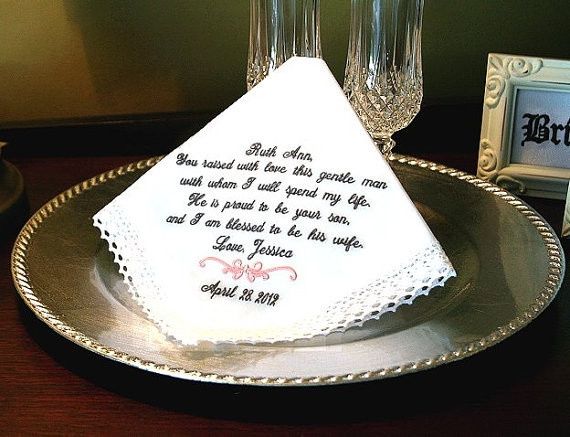 Ruth Ann,
You raised with love this gentle man
with whom I will spend my life.
He is proud to be your son,
and I am blessed to be his wife.
Love, Jessica
April 28, 2012
Bri